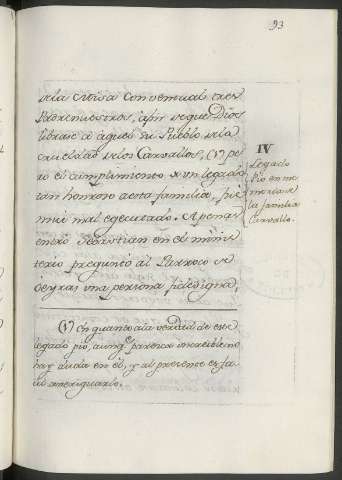 93
de la Misa Conventual tres
Padrenuestros, a fin de que Dios
librase a aquel su Pueblo de la
crueldad de los Carvallos, (1) pe
ro el cumplimiento de un legado
tan honroso a esta familia, fue
mui mal egecutado. Apenas
entro Sebastian en el minis
terio preguntó al Parroco de
Oeyras una persona fidedigna,
IV
Legado
Pio en me
moria de
la familia
Carvallo.
(1) En quanto a la verdad de este
legado pio, aunq.e parezca increible no
hay duda en él, y al presente es fa
cil averiguarlo.